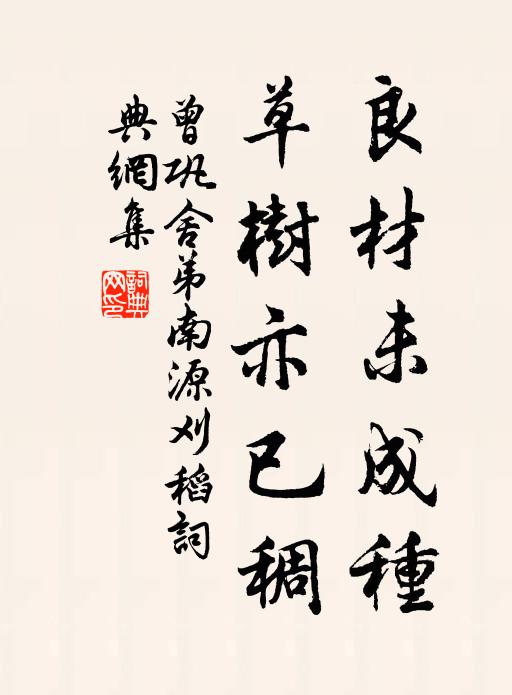 良材未成種
草樹亦已稠
曾巩舍弟南源刈稻詞
典網集
詞典網印